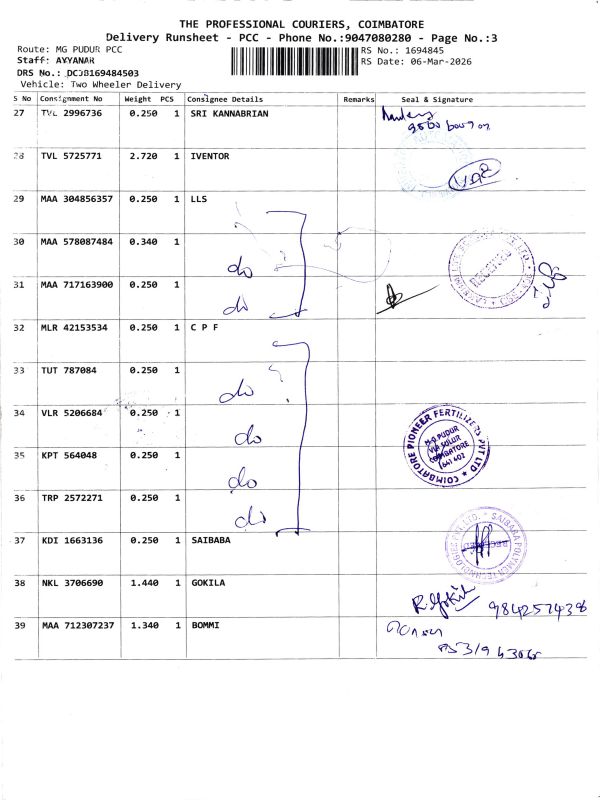 THE PROFESSIONAL COURIERS, COIMBATORE
Delivery Runsheet - PCC - Phone No.:9047080280 - Page No.:3
Route: MG PUDUR PCC
RS No.: 1694845
Staff: AYYANAR
RS Date: 06-Mar-2026
DRS No.:
Vehicle: Two Wheeler Delivery
S No Consignment No Weight PCS Consignee Details Remarks Seal & Signature
27 TVL 2996736 0.250 1 SRI KANNABRIAN
28 TVL 5725771 2.720 1 IVENTOR
29 MAA 304856357 0.250 1 LLS
30 MAA 578087484 0.340 1 do
RECEIVED
31 MAA 717163900 0.250 1 do
32 MLR 42153534 0.250 1 C P F
33 TUT 787084 0.250 1 do
34 VLR 5206684 0.250 1 do
COIMBATORE PIONEER FERTILIZERS PVT LTD
M-G PUDUR
VIA SULUR
COIMBATORE
641 402
35 KPT 564048 0.250 1 do
36 TRP 2572271 0.250 1 do
37 KDI 1663136 0.250 1 SAIBABA
SAIBABA POLYMER TECHNOLOGIES PVT. LTD.
RECEIVED
38 NKL 3706690 1.440 1 GOKILA
R. Gokila 984257438
39 MAA 712307237 1.340 1 BOMMI